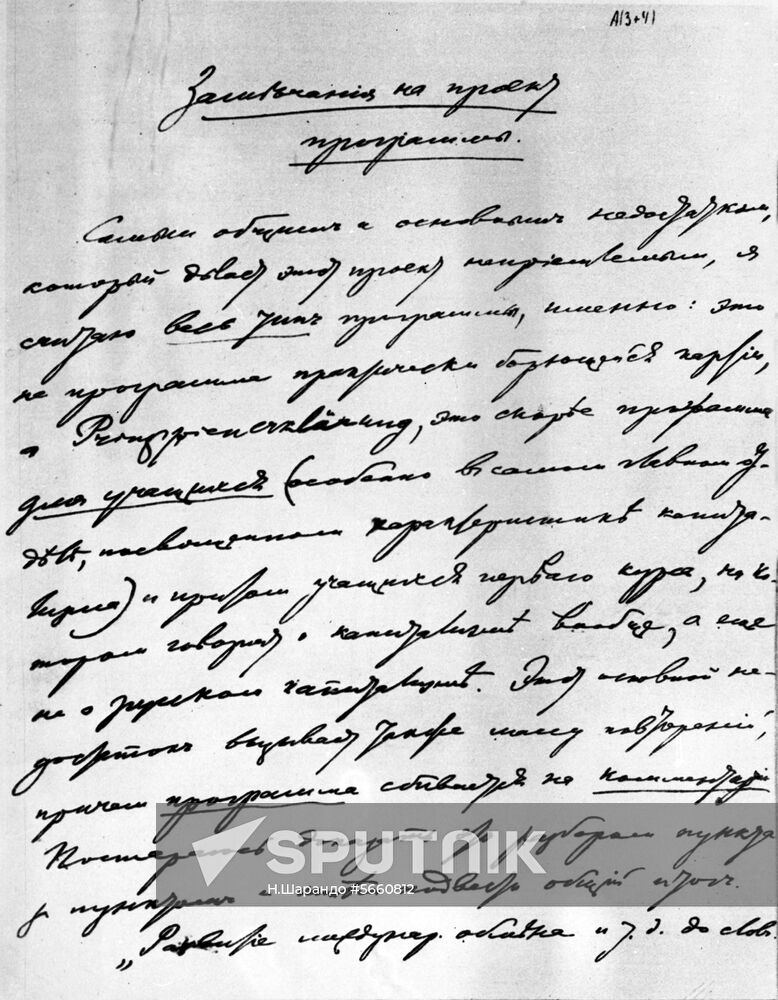 А13+41
Замѣчанія на проект
программы.
Самым общим и основным недостатком,
который дѣлает этот проект непріемлемым, я
считаю весь тип программы, именно: это
не программа практически борющейся партіи,
а Prinzipienerklärung, это скорѣе программа
для учащихся (особенно в самом главном от-
дѣлѣ, посвященном характеристикѣ капита-
лизма) и притом учащихся первого курса, на ко-
тором говорят о капитализмѣ вообще, а еще
не о русском капитализмѣ. Этот основной не-
достаток вызывает также массу повтореній,
причем программа сбивается на комментарій
Постараюсь доказать это разбором пункта
за пунктом и затѣм подведу общій итог.
„Развитіе междунар. обмѣна и т. д. до слов
SPUTNIK
Н.Шарандо #5660812